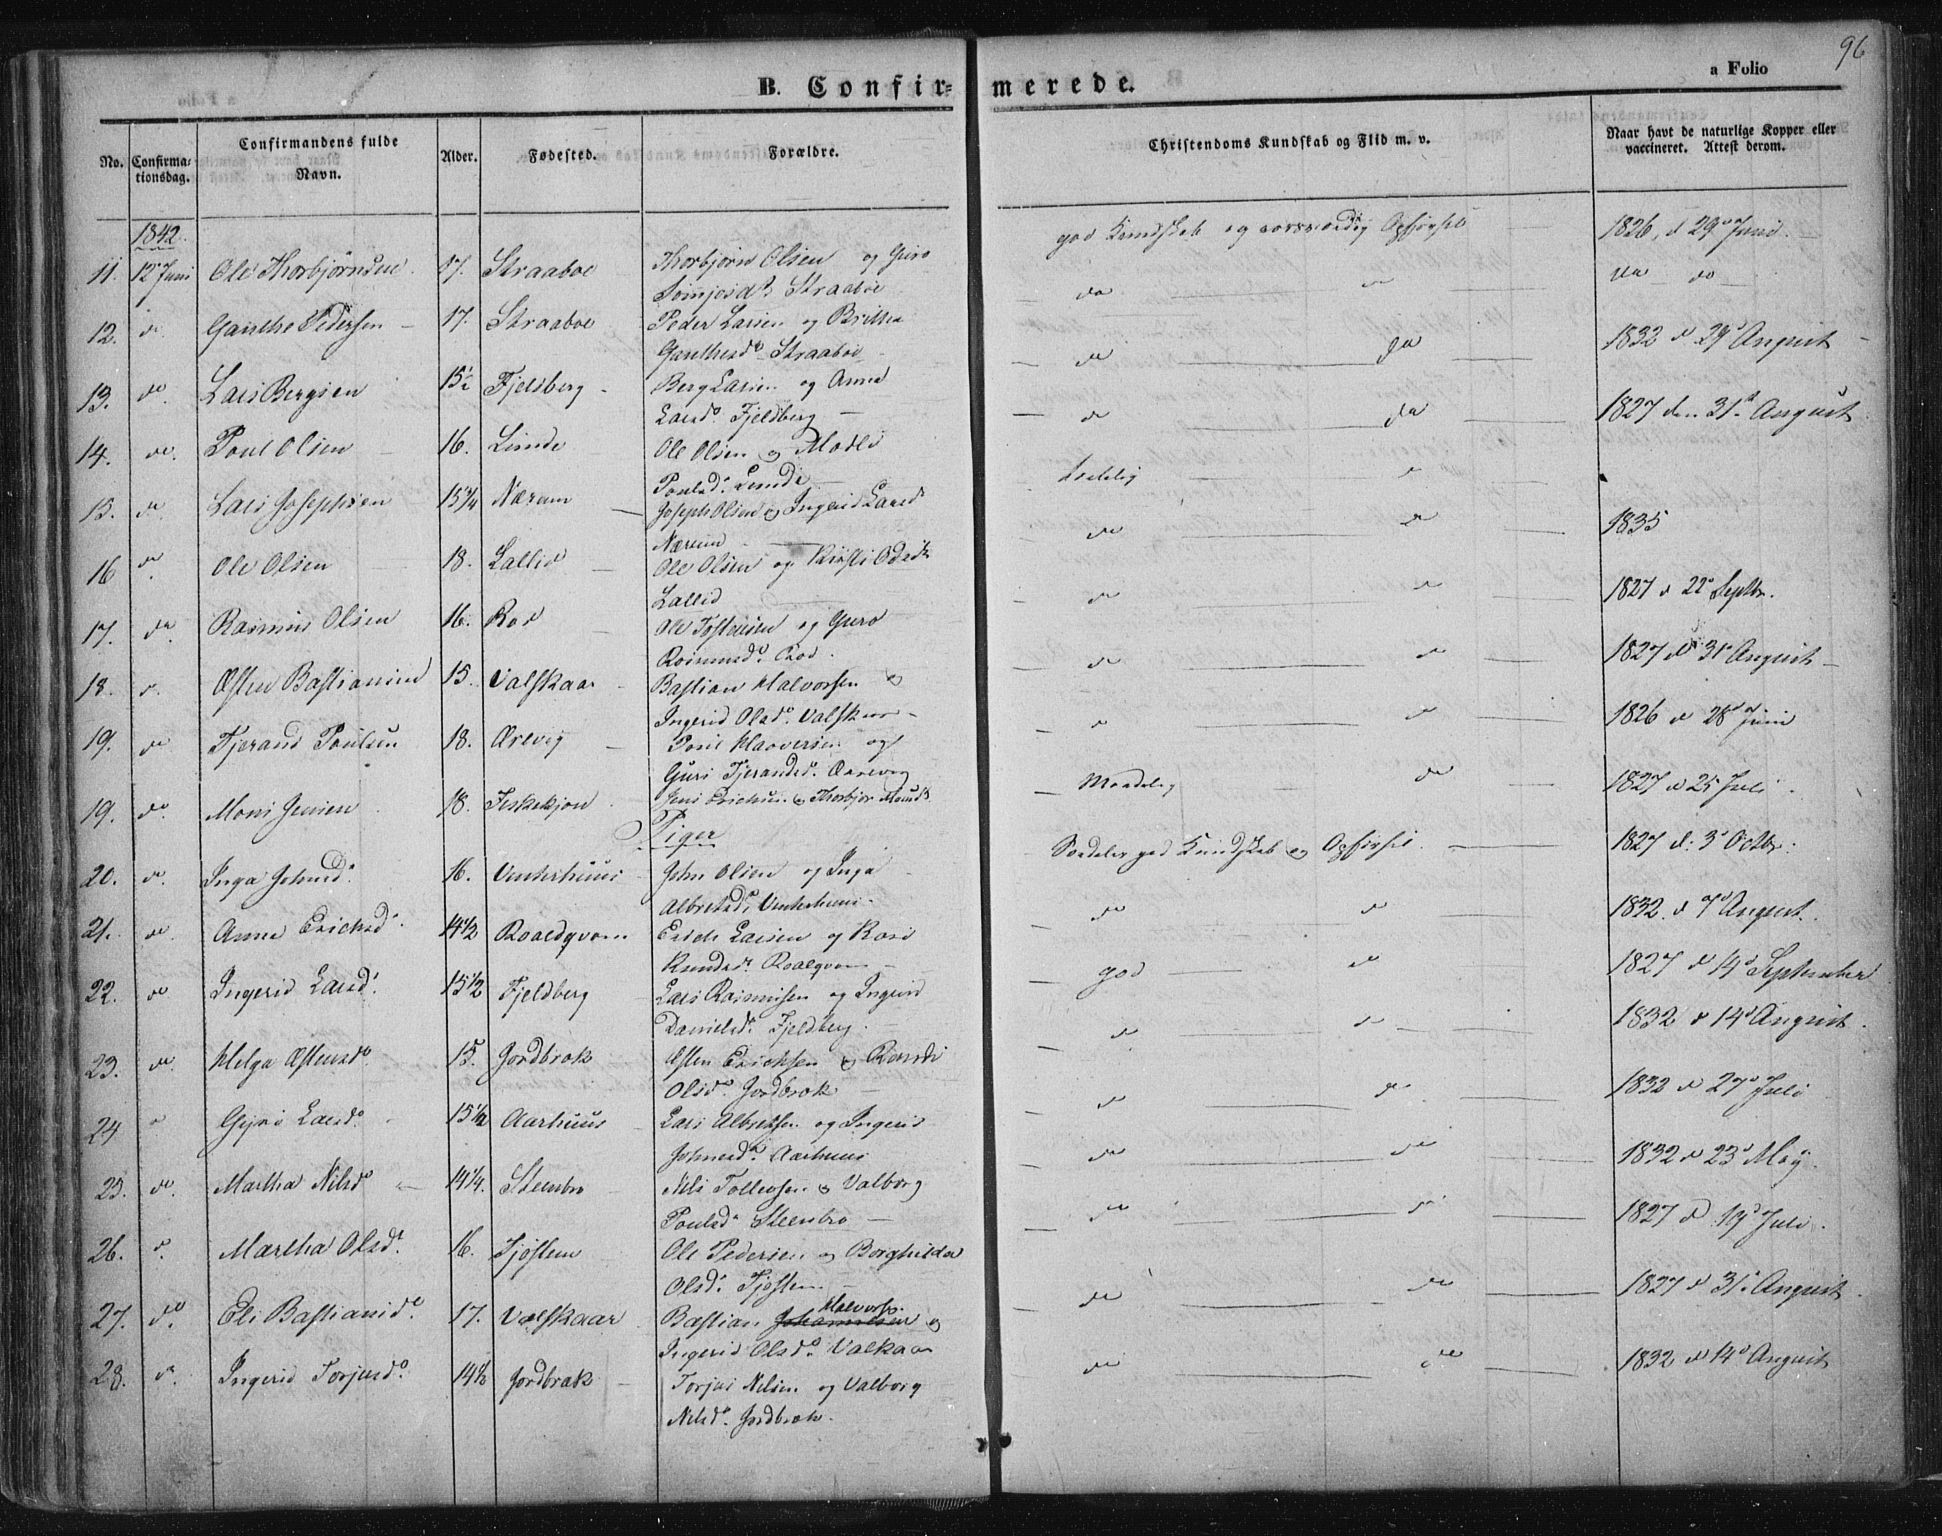 96
B. Confir= merede.
a Folio
No. Confirma-tionsdag. Confirmandens fulde Navn. Alder. Fødested. Forældre. Christendoms Kundskab og Flid m. v. Naar havt de naturlige Kopper eller vaccineret. Attest derom.
1842.
11. 12 Juni Ole Thorbjörnsen 17. Straaboe Thorbjörn Olsen og Guro god Kundskab og Opförsel 1826, d 29 Juni
Straaboe
12. do Garthe Pedersen 17. Straaboe Peder Larsen og Britha do do do
Garthesd. Straaboe
13. do. Lars Bergsen 15½ Fjelberg Berg Larsen og Anna do do 1832 d 29 August
Larsd. Fjeldberg
14. do. Poul Olsen 16. Linde Ole Olsen og Madli do do 1827 den 31 August
Poulsd. Linde
15. do. Lars Josephsen 15¼ Nærum Joseph Olsen og Ingerid Larsd do
Nærum
16 do Ole Olsen 18. Lallid Ole Olsen og Kirsti do do 1835
Lallid
17. do Rasmus Olsen 16. Rod Ole Tostensen og Guro do do 1827 d 22 Septbr.
Rasmusd. Rod.
18. d. Østen Bastiansen 15. Valskaar Bastian Halvorsen og do do 1827 d 31 August
Ingerid Olsd. Valskaar
19. do Tjerand Poulsen 18. Ærevig Poul Haaversen og do do 1826 d 28 Juni
Guri Tjerandsd. Ærevig
19. do. Mons Jensen 18. Fiskekjön Jens Erichsen og Thorbjør Monsd. Maadelig do 1827 d 25 Juli
Piger
20. do. Inga Johnsd. 16. Vinterhuus John Olsen og Inga Særdeles god Kundskab og Opförsel 1827 d. 3 Octbr.
Albretsd. Vinterhuus.
21. do. Anna Erichsd. 14½ Roaldqvam Erich Larsen og Kari do do 1832. d 7 August.
Knudsd. Roalqvam
22. do Ingerid Larsd. 15½ Fjeldberg Lars Rasmusen og Ingerid god do 1827 d 14 September
Danielsd. Fjeldberg.
23. do. Helga Østensd. 15. Jordbrak Østen Erichsen og Randi do do 1832 d 14 August.
Olsd. Jordbrak
24 Gyri Larsd. 15½ Aarhuus Lars Albretsen og Ingerid do do 1832 d 27 Juli
Johnesd. Aarhuus
25. do. Martha Nilsd 14¼. Steenbro Nils Tollevsen og Valborg do do 1832 d 23 May.
Poulsd. Steenbro
26. d. Martha Olsd. 16. Tjösten Ole Pedersen og Borghilda do do 1827 d 19 Juli.
Olsd. Tjösten
27. do. Eli Bastiansd. 17. Valskaar Bastian Halvorsen og do do 1827 d 31 August.
Ingerid Olsd. Valkaar
28. d. Ingerid Torjusd. 14½ Jordbrak Torjus Nilsen og Valborg do do 1832 d 14 August
Nilsd. Jordbrak.